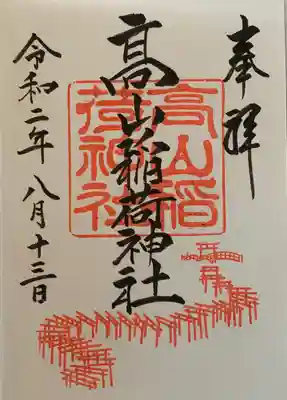 奉拝
髙山稲荷神社
高山稲荷神社
令和二年 八月十三日